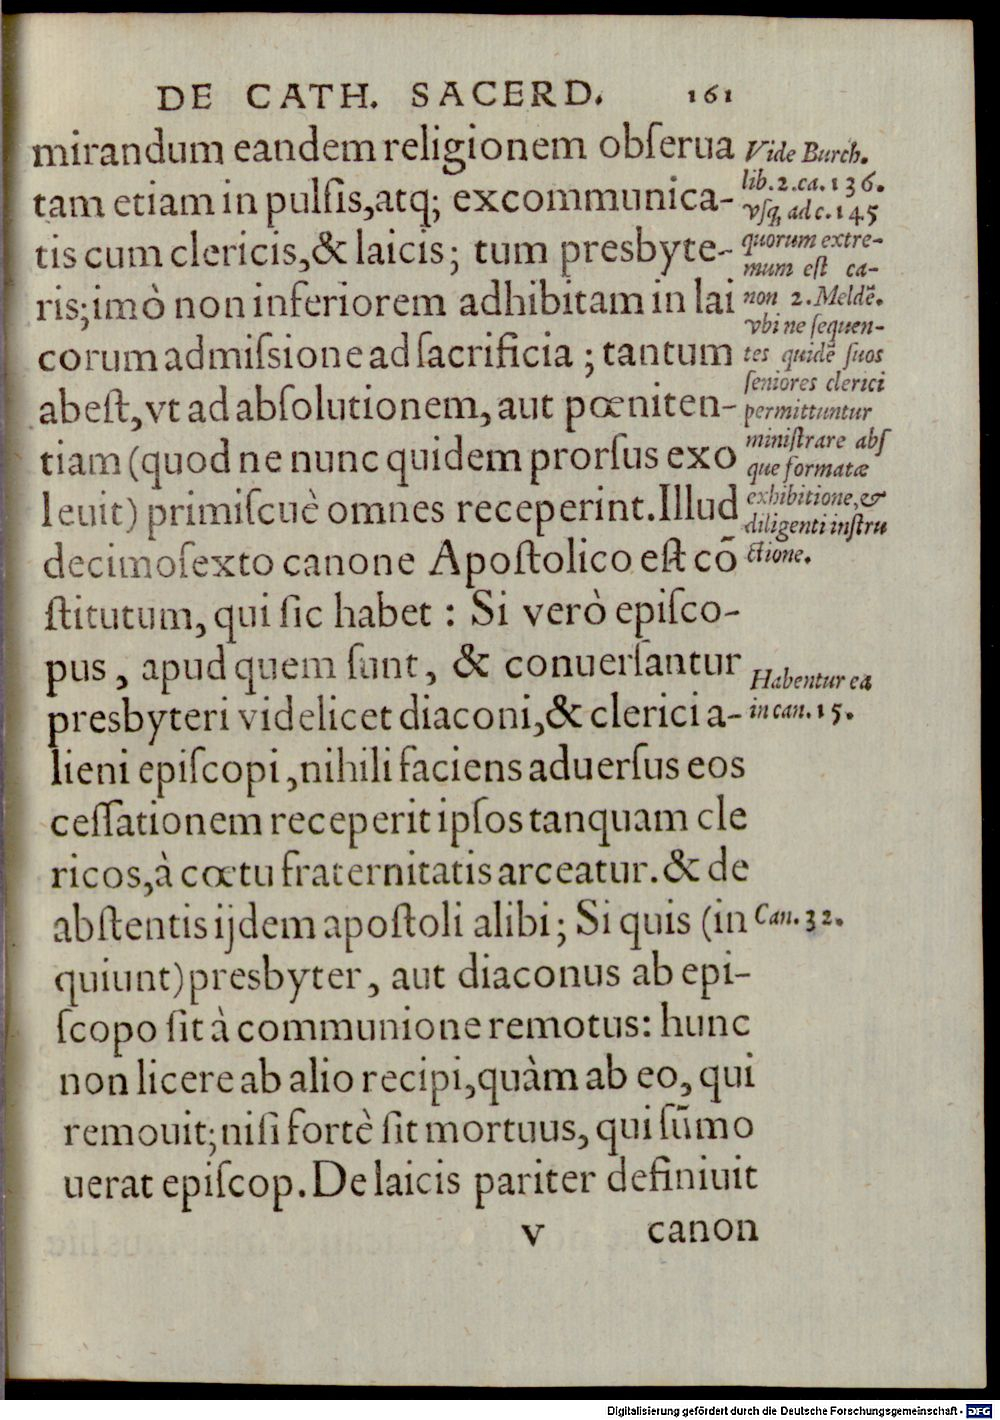 DE CATH. SACERD. 161
mirandum eandem religionem obſerua
tam etiam in pulſis, atq; excommunica-
tis cum clericis, & laicis; tum presbyte-
ris; imò non inferiorem adhibitam in lai
corum admiſsione ad ſacrificia; tantum
abeſt, vt ad abſolutionem, aut pœniten-
tiam (quod ne nunc quidem prorſus exo
leuit) primiſcuè omnes receperint. Illud
decimoſexto canone Apoſtolico eſt cō
ſtitutum, qui ſic habet: Si verò epiſco-
pus, apud quem ſunt, & conuerſantur
presbyteri videlicet diaconi, & clerici a-
lieni epiſcopi, nihili faciens aduerſus eos
ceſſationem receperit ipſos tanquam cle
ricos, à cœtu fraternitatis arceatur. & de
abſtentis ijdem apoſtoli alibi; Si quis (in
quiunt) presbyter, aut diaconus ab epi-
ſcopo ſit à communione remotus: hunc
non licere ab alio recipi, quàm ab eo, qui
remouit; niſi fortè ſit mortuus, qui ſūmo
uerat epiſcop. De laicis pariter definiuit
v canon
Vide Burch.
lib. 2. ca. 136.
vſq, ad c. 145
quorum extre-
mum eſt ca-
non 2. Meldē.
vbi ne ſequen-
tes quidē ſuos
ſeniores clerici
permittuntur
miniſtrare abſ
que formatæ
exhibitione, &
diligenti inſtru
ctione.
Habentur ea
in can. 15.
Can. 32.
Digitalisierung gefördert durch die Deutsche Forschungsgemeinschaft - DFG